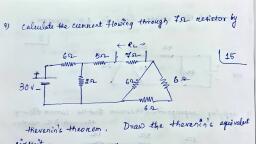 9) Calculate the current flowing through 7Ω resistor by
← RL →
6Ω 5Ω 7Ω
15
30V 2Ω 6Ω 6Ω
6Ω
thevenin's theorem. Draw the thevenin's equivalent
circuit.